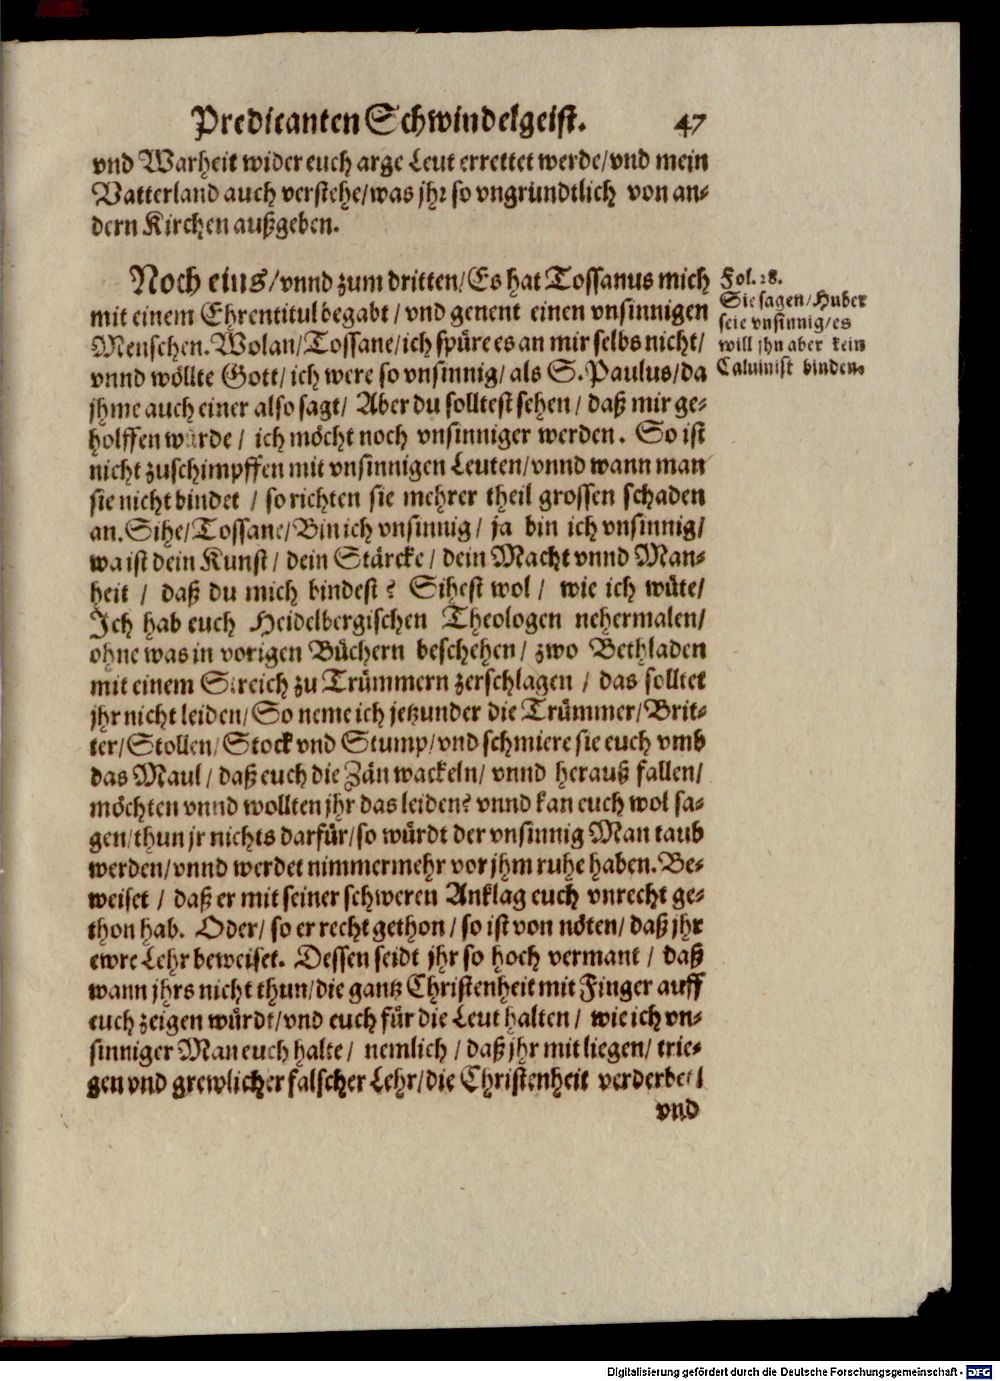 Predicanten Schwindelgeist. 47
vnd Warheit wider euch arge Leut errettet werde/vnd mein
Vatterland auch verstehe/was jhr so vngrundtlich von an-
dern Kirchen außgeben.
Noch eins/vnnd zum dritten/Es hat Tossanus mich
mit einem Ehrentitul begabt/vnd genent einen vnsinnigen
Menschen. Wolan/Tossane/ich spüre es an mir selbs nicht/
vnnd wöllte Gott/ich were so vnsinnig/als S. Paulus/da
jhme auch einer also sagt/ Aber du solltest sehen/daß mir ge-
holffen würde/ ich möcht noch vnsinniger werden. So ist
nicht zuschimpffen mit vnsinnigen Leuten/vnnd wann man
sie nicht bindet / so richten sie mehrer theil grossen schaden
an. Sihe/Tossane/Bin ich vnsinnig/ ja bin ich vnsinnig/
wa ist dein Kunst/ dein Stärcke/ dein Macht vnnd Man-
heit / daß du mich bindest? Sihest wol / wie ich wüte/
Ich hab euch Heidelbergischen Theologen nehermalen/
ohne was in vorigen Büchern beschehen/ zwo Bethladen
mit einem Streich zu Trümmern zerschlagen / das solltet
jhr nicht leiden/So neme ich jetzunder die Trümmer/Brit-
ter/Stollen/Stock vnd Stump/vnd schmiere sie euch vmb
das Maul/daß euch die Zän wackeln/ vnnd herauß fallen/
möchten vnnd wollten jhr das leiden? vnnd kan euch wol sa-
gen/thun jr nichts darfür/so würdt der vnsinnig Man taub
werden/vnnd werdet nimmermehr vor jhm ruhe haben. Be-
weiset / daß er mit seiner schweren Anklag euch vnrecht ge-
thon hab. Oder/ so er recht gethon/ so ist von nöten/ daß jhr
ewre Lehr beweiset. Dessen seidt jhr so hoch vermant / daß
wann jhrs nicht thun/die gantz Christenheit mit Finger auff
euch zeigen würdt/vnd euch für die Leut halten/ wie ich vn-
sinniger Man euch halte/ nemlich/ daß jhr mit liegen/ trie-
gen vnd grewlicher falscher Lehr/die Christenheit verderbet/
vnd
Fol. 28.
Sie sagen/Huber
seie vnsinnig/es
will jhn aber kein
Caluinist binden.
Digitalisierung gefördert durch die Deutsche Forschungsgemeinschaft - DFG